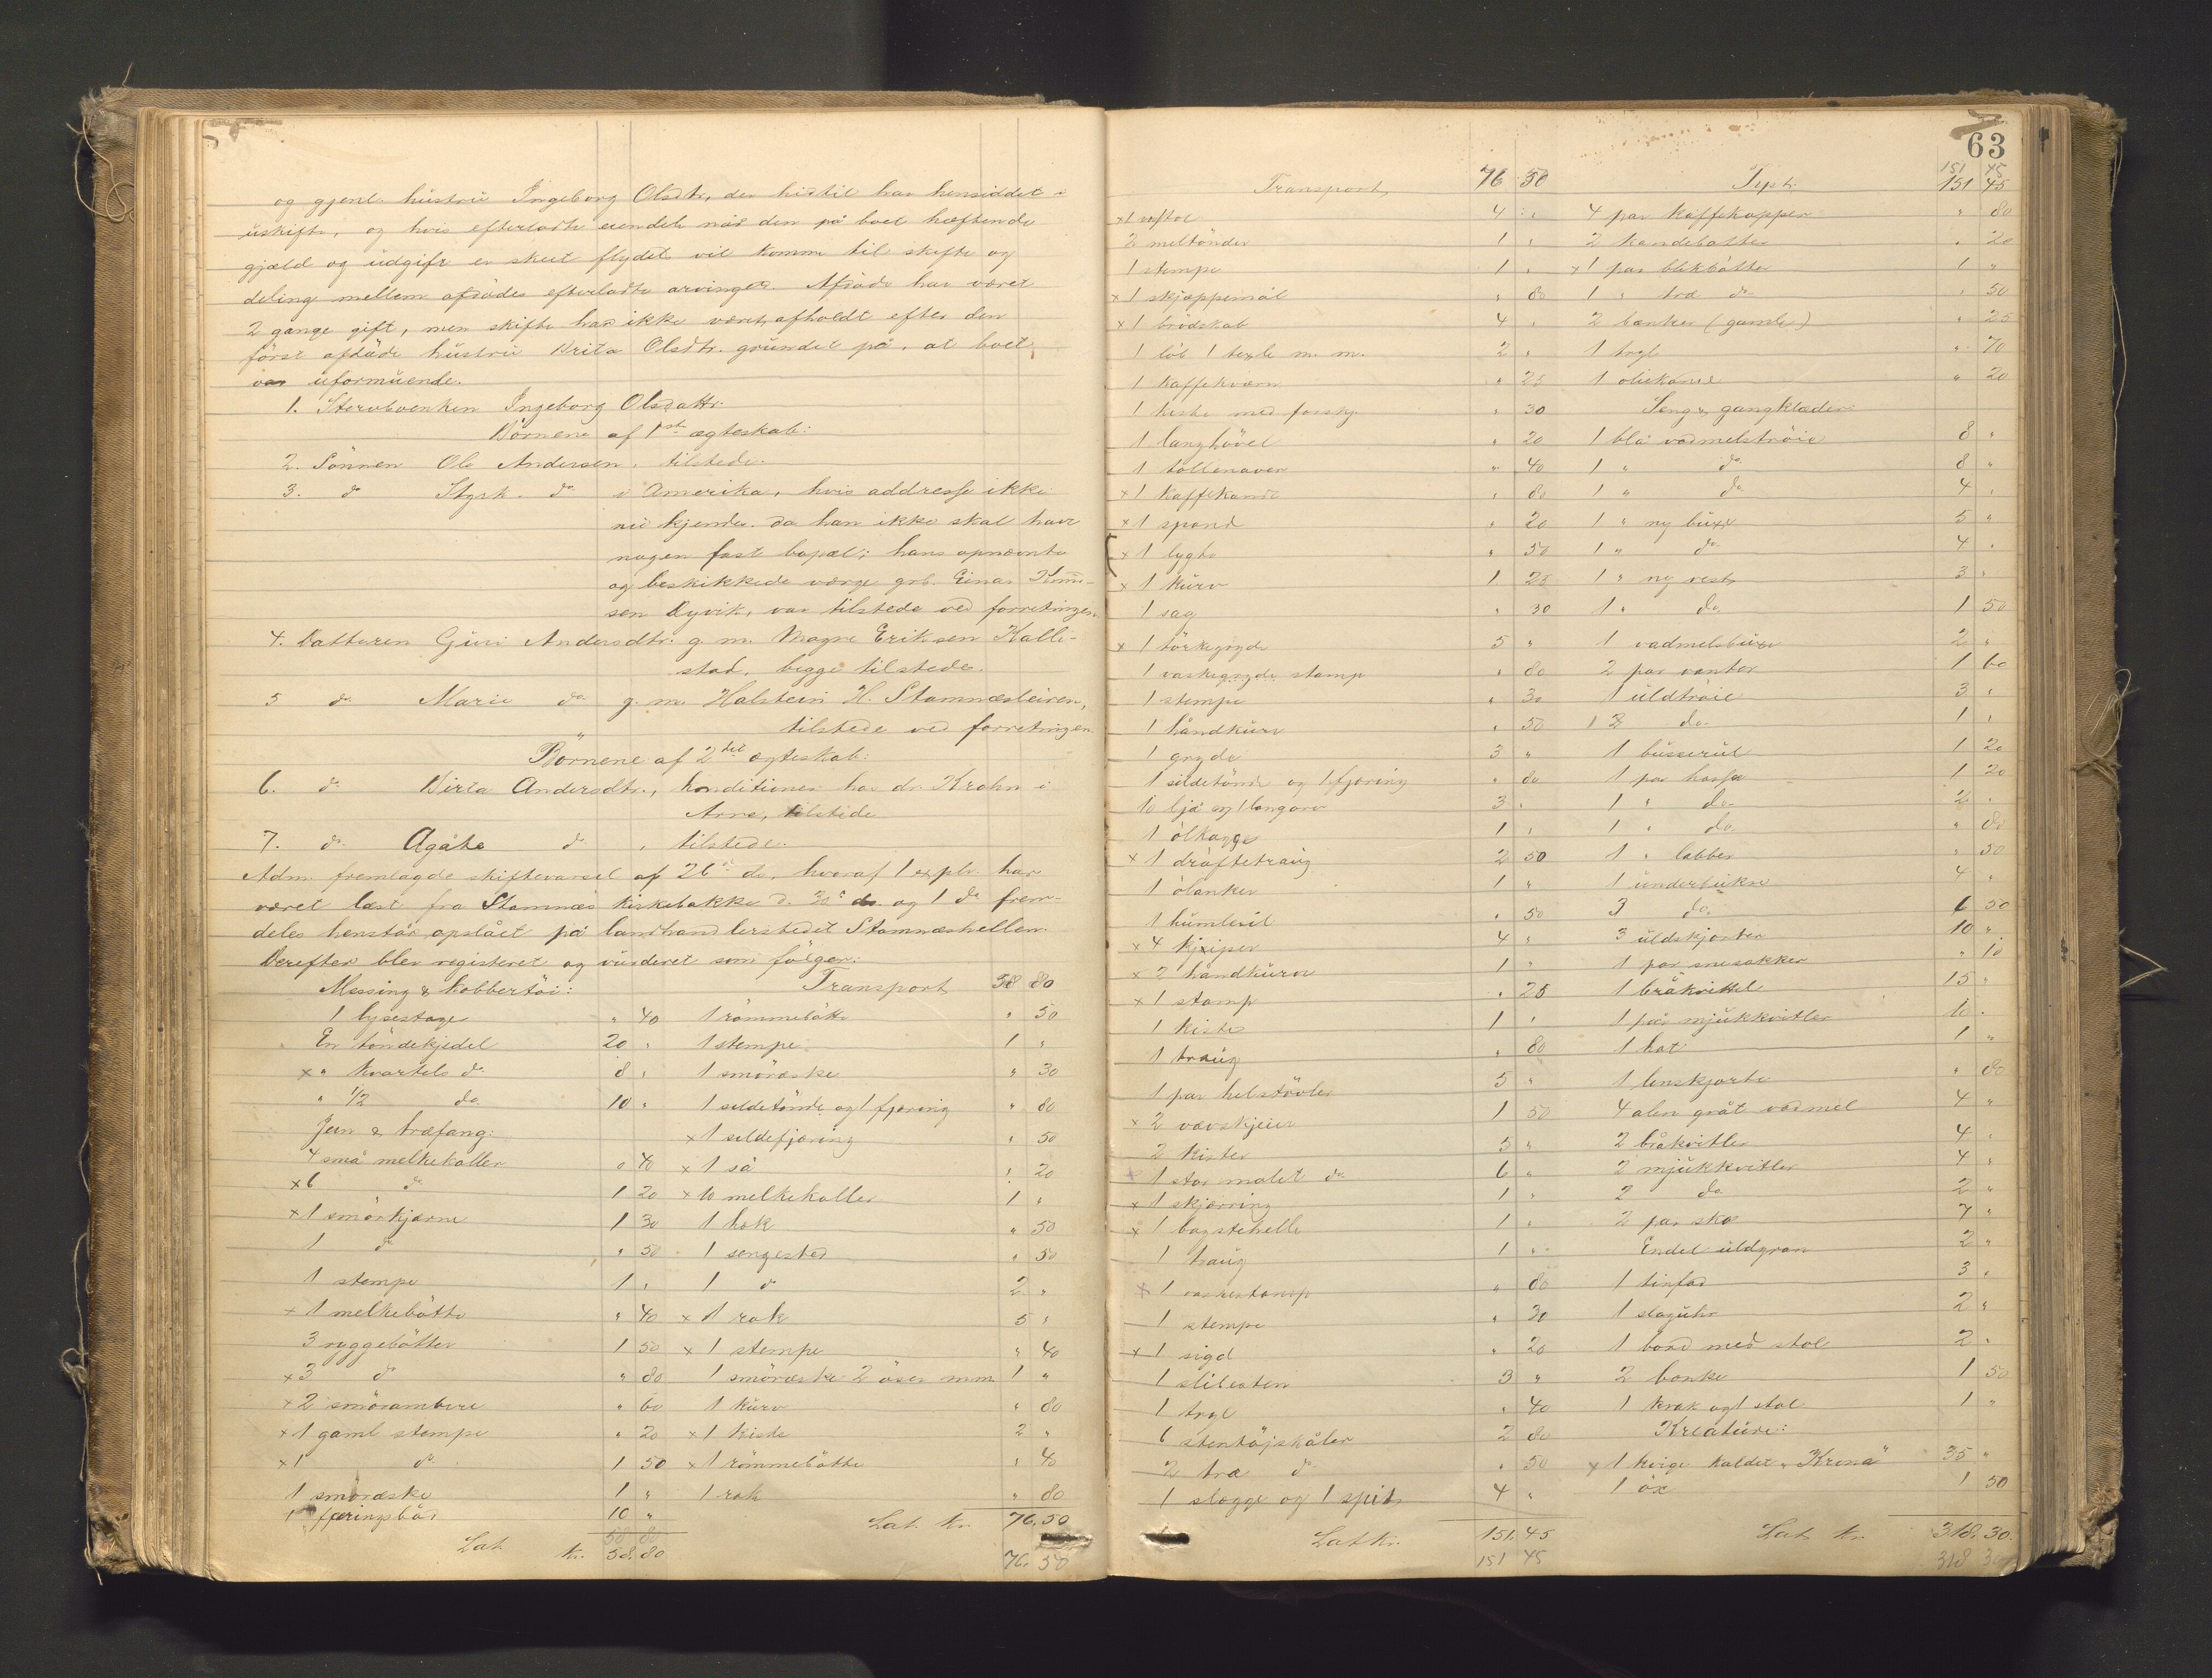 og gjenl. hüstrü Ingeborg Olsdtr, der hidtil har hensiddet i
üskifte, og hvis efterladte eiendele når den på boet hæftende
gjæld og üdgifr er skeet flydet vil komme til skifte og
deling mellem afdødes efterladte arvinger. Afdøde har været
2 gange gift, men skifte har ikke været afholdt efter den
först afdöde hüstrü Brita Olsdtr. gründet på, at boet
var üformüende.
1. Stervboenken Ingeborg Olsdattr.
Börnene af 1ste ægteskab:
2. Sönnen Ole Andersen, tilstede.
3. do Styrk. do i Amerika, hvis addresse ikke
nü kjendes. da han ikke skal have
nogen fast bopæl; hans opnævnte
og beskikkede værge grb. Einar
sen Dyvik, var tilstede ved forretningen.
4. Datteren Güri Andersdtr. g. m. Magne Eriksen Kalle-
stad, begge tilstede.
5 do. Marie do g. m. Halstein H. Stamnæsleiren,
tilstede ved forretningen.
Börnene af 2det ægteskab:
6. do Birta Andersdtr., konditioner hos dr. Krohn i
Arne, tilstede
7. do. Agåta do, tilstede.
Adm. fremlagde skiftevarsel af 26de ds, hvoraf 1 explr. har
været læst fra Stamnæs kirkebakke d. 30te ds. og 1 do frem-
deles henstår opslået på landhandlerstedet Stamneshellen.
Derefter blev registeret og vürderet som fölger:
Messing & kobbertöi:
1 lysestage " 40
En töndekjedel 20 "
x " kvartels do 8 "
" 1/2 do. 10 "
Jern & træfang:
4 små melkekoller " 40
x 6 do 1 20
x 1 smörkjærne 1 30
1 do " 50
1 stempe 1 "
x 1 melkebötte " 40
3 ryggebötter 1 50
x 3 do " 80
x 2 smörambere " 60
x 1 gaml stempe " 20
x 1 do. 1 50
1 smöræske 1 "
1 færingsbåd 10 "
50 80
Lat. kr. 58. 80
Transport 58 80
1 römmebötte " 50
1 stempe 1 "
1 smöræske " 30
1 sildetönde og 1 fjæring " 80
x 1 sildefjæring " 50
x 1 så " 20
x 10 melkekoller 1 "
1 hak " 50
1 sengested " 50
1 do 2 "
x 1 rok 5 "
x 1 stempe " 40
1 smöræske 2 öser m.m. 1 "
1 kürv " 80
x 1 kiste 2 "
x 1 römmebötte " 40
1 rok " 80
Lat. Kr. 76,50
76, 50
63
Transport, 76 50
x 1 væfstol 4 "
2 meltönder 1 "
1 stempe 1 "
x 1 skjæppemål " 80
x 1 brödskab 4 "
1 löb 1 texle m. m. 2 "
1 kaffekværn " 25
1 kiste med forskj. " 30
1 langhövel " 20
1 tollenaver " 40
x 1 kaffekande " 80
x 1 spand " 20
x 1 lygte " 50
x 1 kürv 1 25
1 sag " 30
x 1 törkegryde 5 "
1 vaskegryde stamp " 80
1 stempe " 30
1 håndkürv " 50
1 gryde 3 "
1 sildetönde og 1 fjæring " 80
10 ljå og 1 langorv 3 "
1 ölkagge 1 "
x 1 dröftetraüg 2 50
1 ölanker 1 "
1 hümlesil " 50
x 4 kjxiper 4 "
x 2 håndkürve 1 "
x 1 stamp " 25
1 kiste 1 "
1 traüg " 80
1 par helstövler 5 "
x 2 vævskjeier 1 50
2 kister 5 "
x 1 stor malet do 6 "
x 1 skjærring 1 "
x 1 bagstehelle 1 "
1 traüg 1 "
x 1 vaskestamp " 80
1 stempe " 30
x 1 sigd " 20
1 slibesten 3 "
1 trgl " 40
6 stentöjskåler 2 80
2 træ do " 50
1 slegge og 1 spid 4 "
Lat kr. 151,45
151 45
151 45
Tspt. 151 45
4 par kaffekopper " 80
2 kandebøtter " 20
x 1 par blikbötter 1 "
1 " træ do " 50
2 bænker (gamle) " 25
1 trgl " 70
1 oliekande " 20
Seng & gangklæder
1 blå vadmelströie 8 "
1 " do 8 "
1 " do 4 "
1 " ny büxe 5 "
1 " do. 4 "
1 " ny vest 3 "
1 " do. 1 50
1 vadmelsbüxe 2 "
2 par vanter 1 60
1 üldtröie 3 "
1 do. 1 "
1 büsserül 1 20
1 par hoser 1 20
1 " do. 2 "
1 " do. " 80
1 " labber " 50
1 ünderbükse 4 "
3 do. 6 50
3 üldskjorter 10 "
1 par snesokker " 10
1 bråkvittel 15 "
1 par mjükkvitler 10 "
1 hat 1 "
1 lenskjorte " 80
4 alen gråt vadmel 4 "
2 bråkvitler 4 "
2 mjükkvitler 4 "
2 do 2 "
2 par sko 7 "
Endel üldgran 2 "
1 tinfad 3 "
1 slagühr 2 "
1 bord med stol 2 "
2 bænke 1 50
1 krak og 1 stol 1 "
Kreatüre:
x 1 kvige kaldet "Krona" 35 "
1 öx 1 50
Lat. kr. 318,30.
318 30